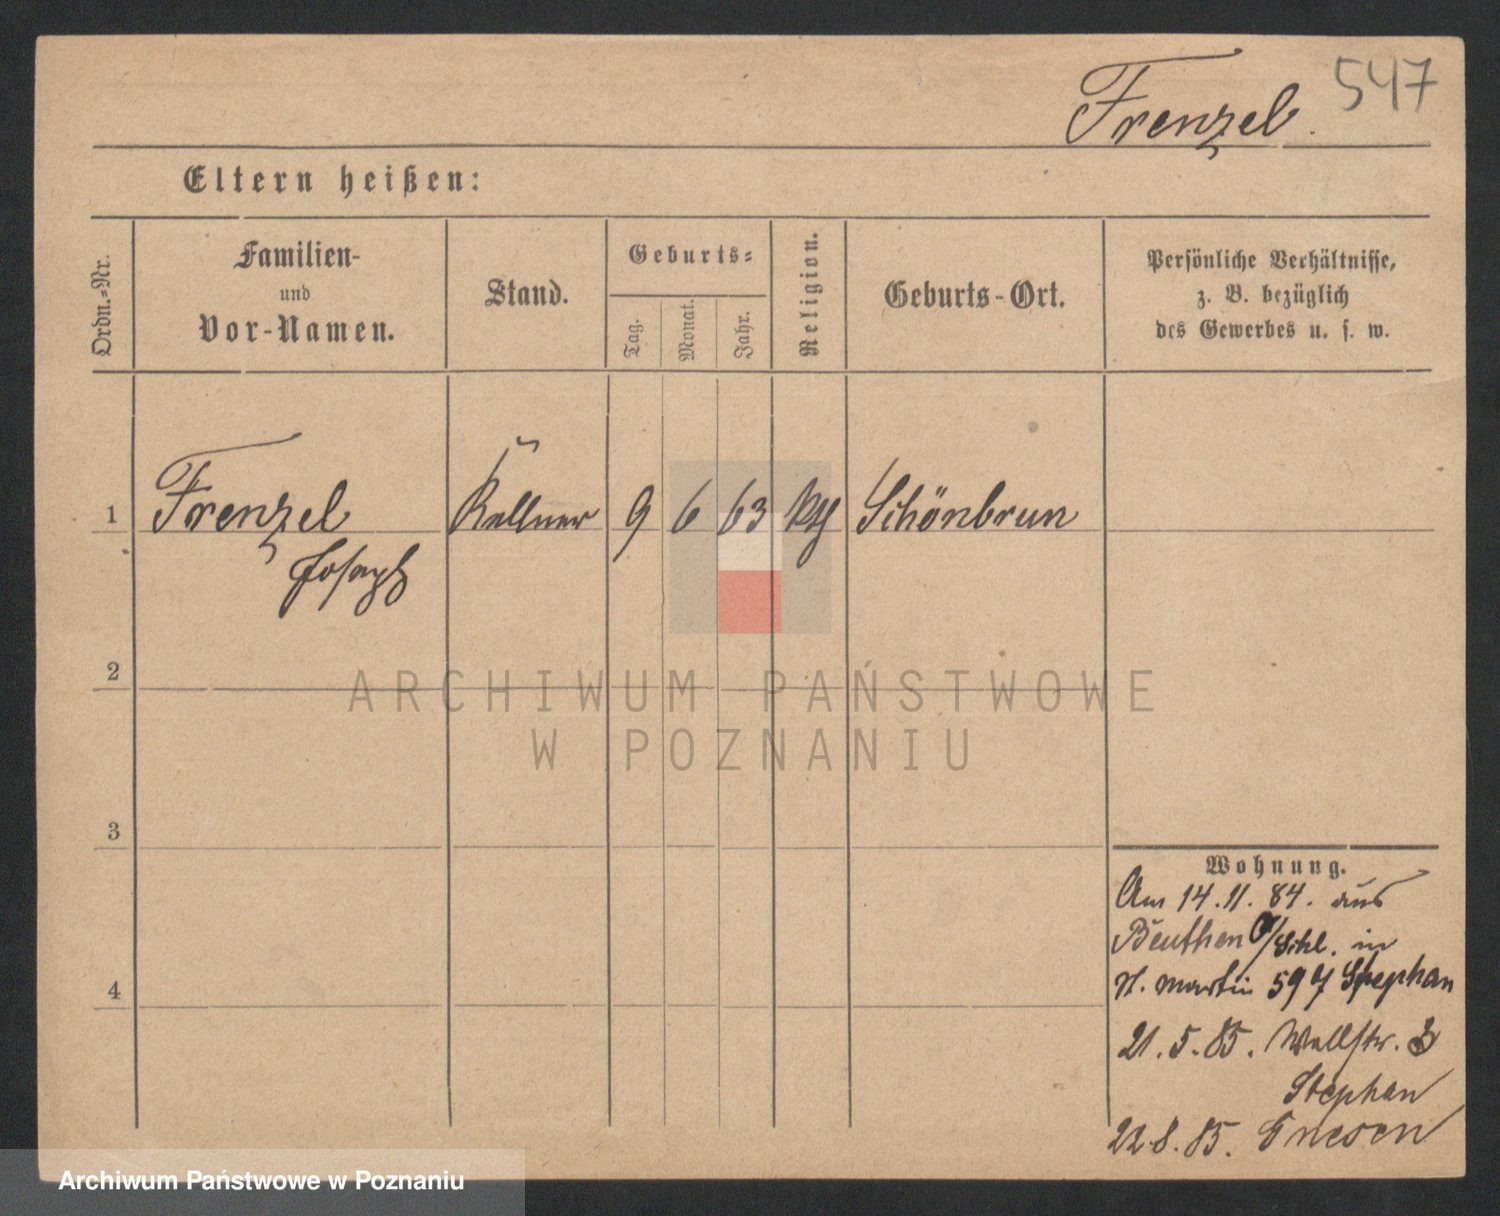 547
Frenzel.
Eltern heißen:
Ordn.=Nr.
Familien-
und
Vor-Namen.
Stand.
Geburts=
Tag.
Monat.
Jahr.
Religion.
Geburts-Ort.
Persönliche Verhältnisse,
z. B. bezüglich
des Gewerbes u. s. w.
1 Frenzel Kellner 9 6 63 Schönbrun
Joseph
2
ARCHIWUM PAŃSTWOWE
W POZNANIU
3
4
Wohnung.
Am 14.11.84. aus
Beuthen O/Schl. in
St. Martin 59 Stephan
21.5.85. Wallstr. 3
Stephan
22.8.85. Gnesen
Archiwum Państwowe w Poznaniu